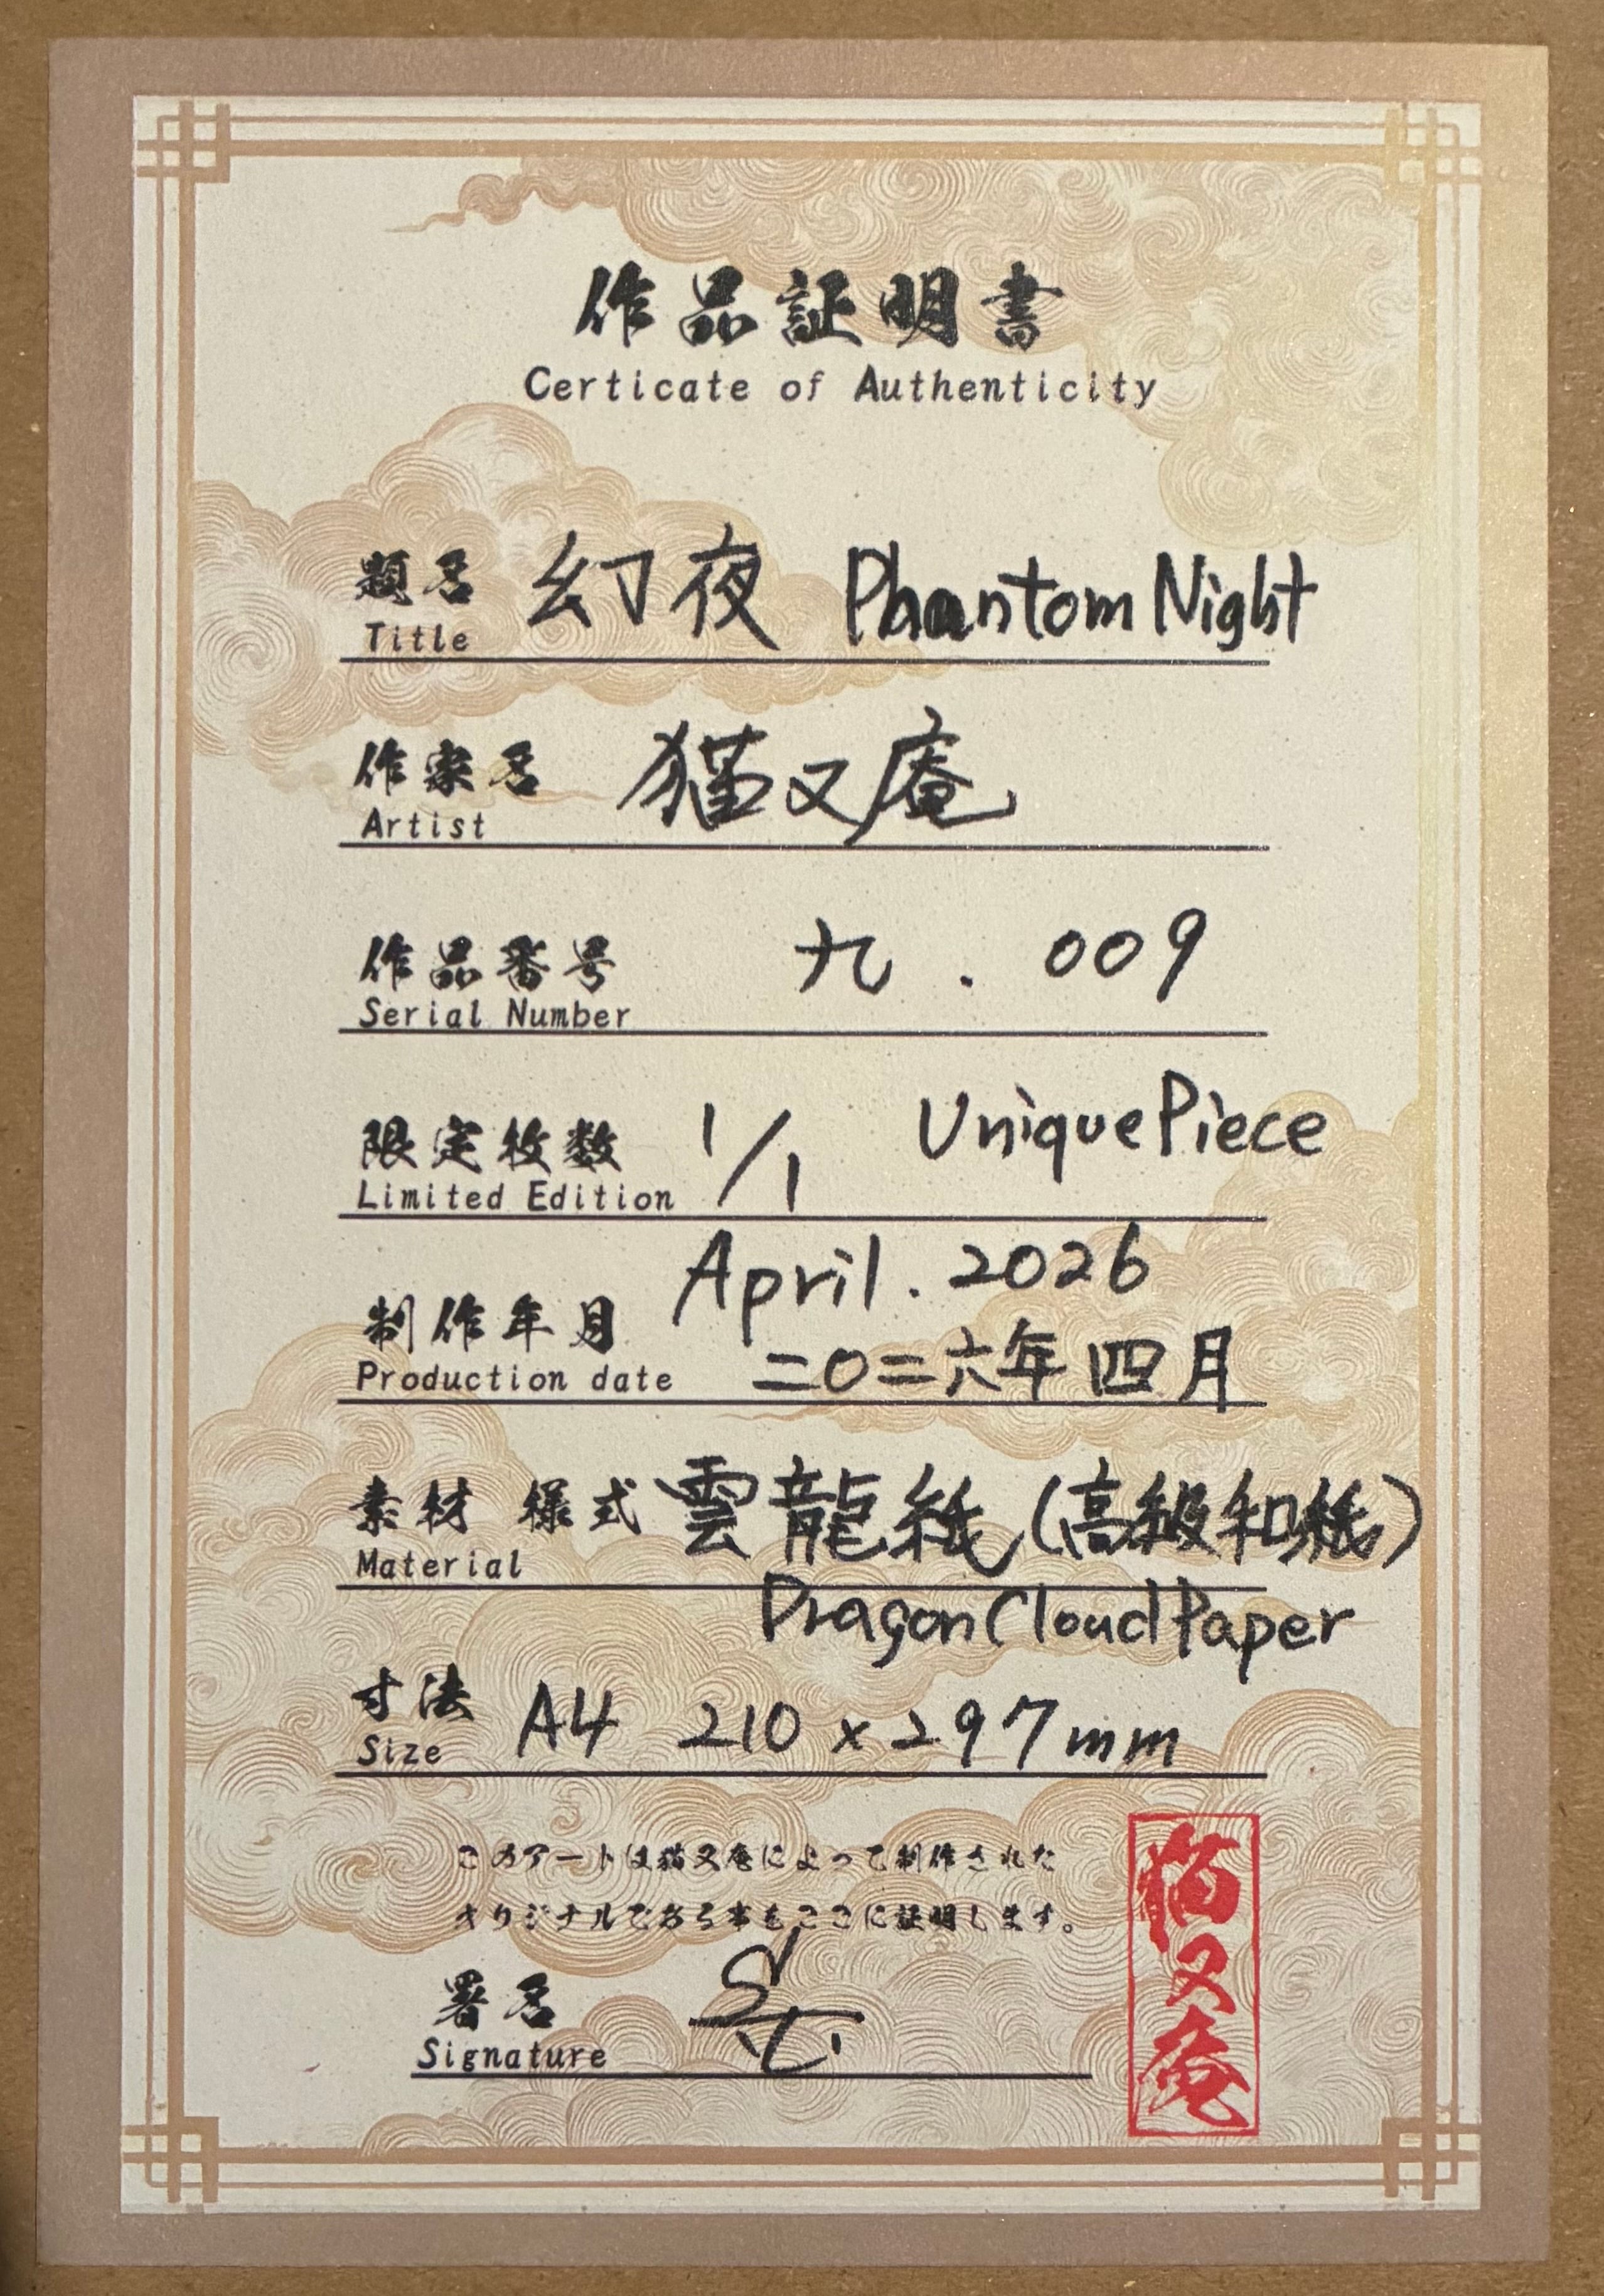 作品証明書
Certicate of Authenticity
題名 幻夜 Phantom Night
Title
作家名 猫又庵
Artist
作品番号 九 . 009
Serial Number
限定枚数 1/1 Unique Piece
Limited Edition
April. 2026
制作年月 二〇二六年四月
Production date
素材 様式 雲龍紙(高級和紙)
Material
Dragon Cloud Paper
寸法 A4 210 x 297mm
Size
このアートは猫又庵によって制作された
オリジナルである事をここに証明します。
署名
Signature
猫又庵